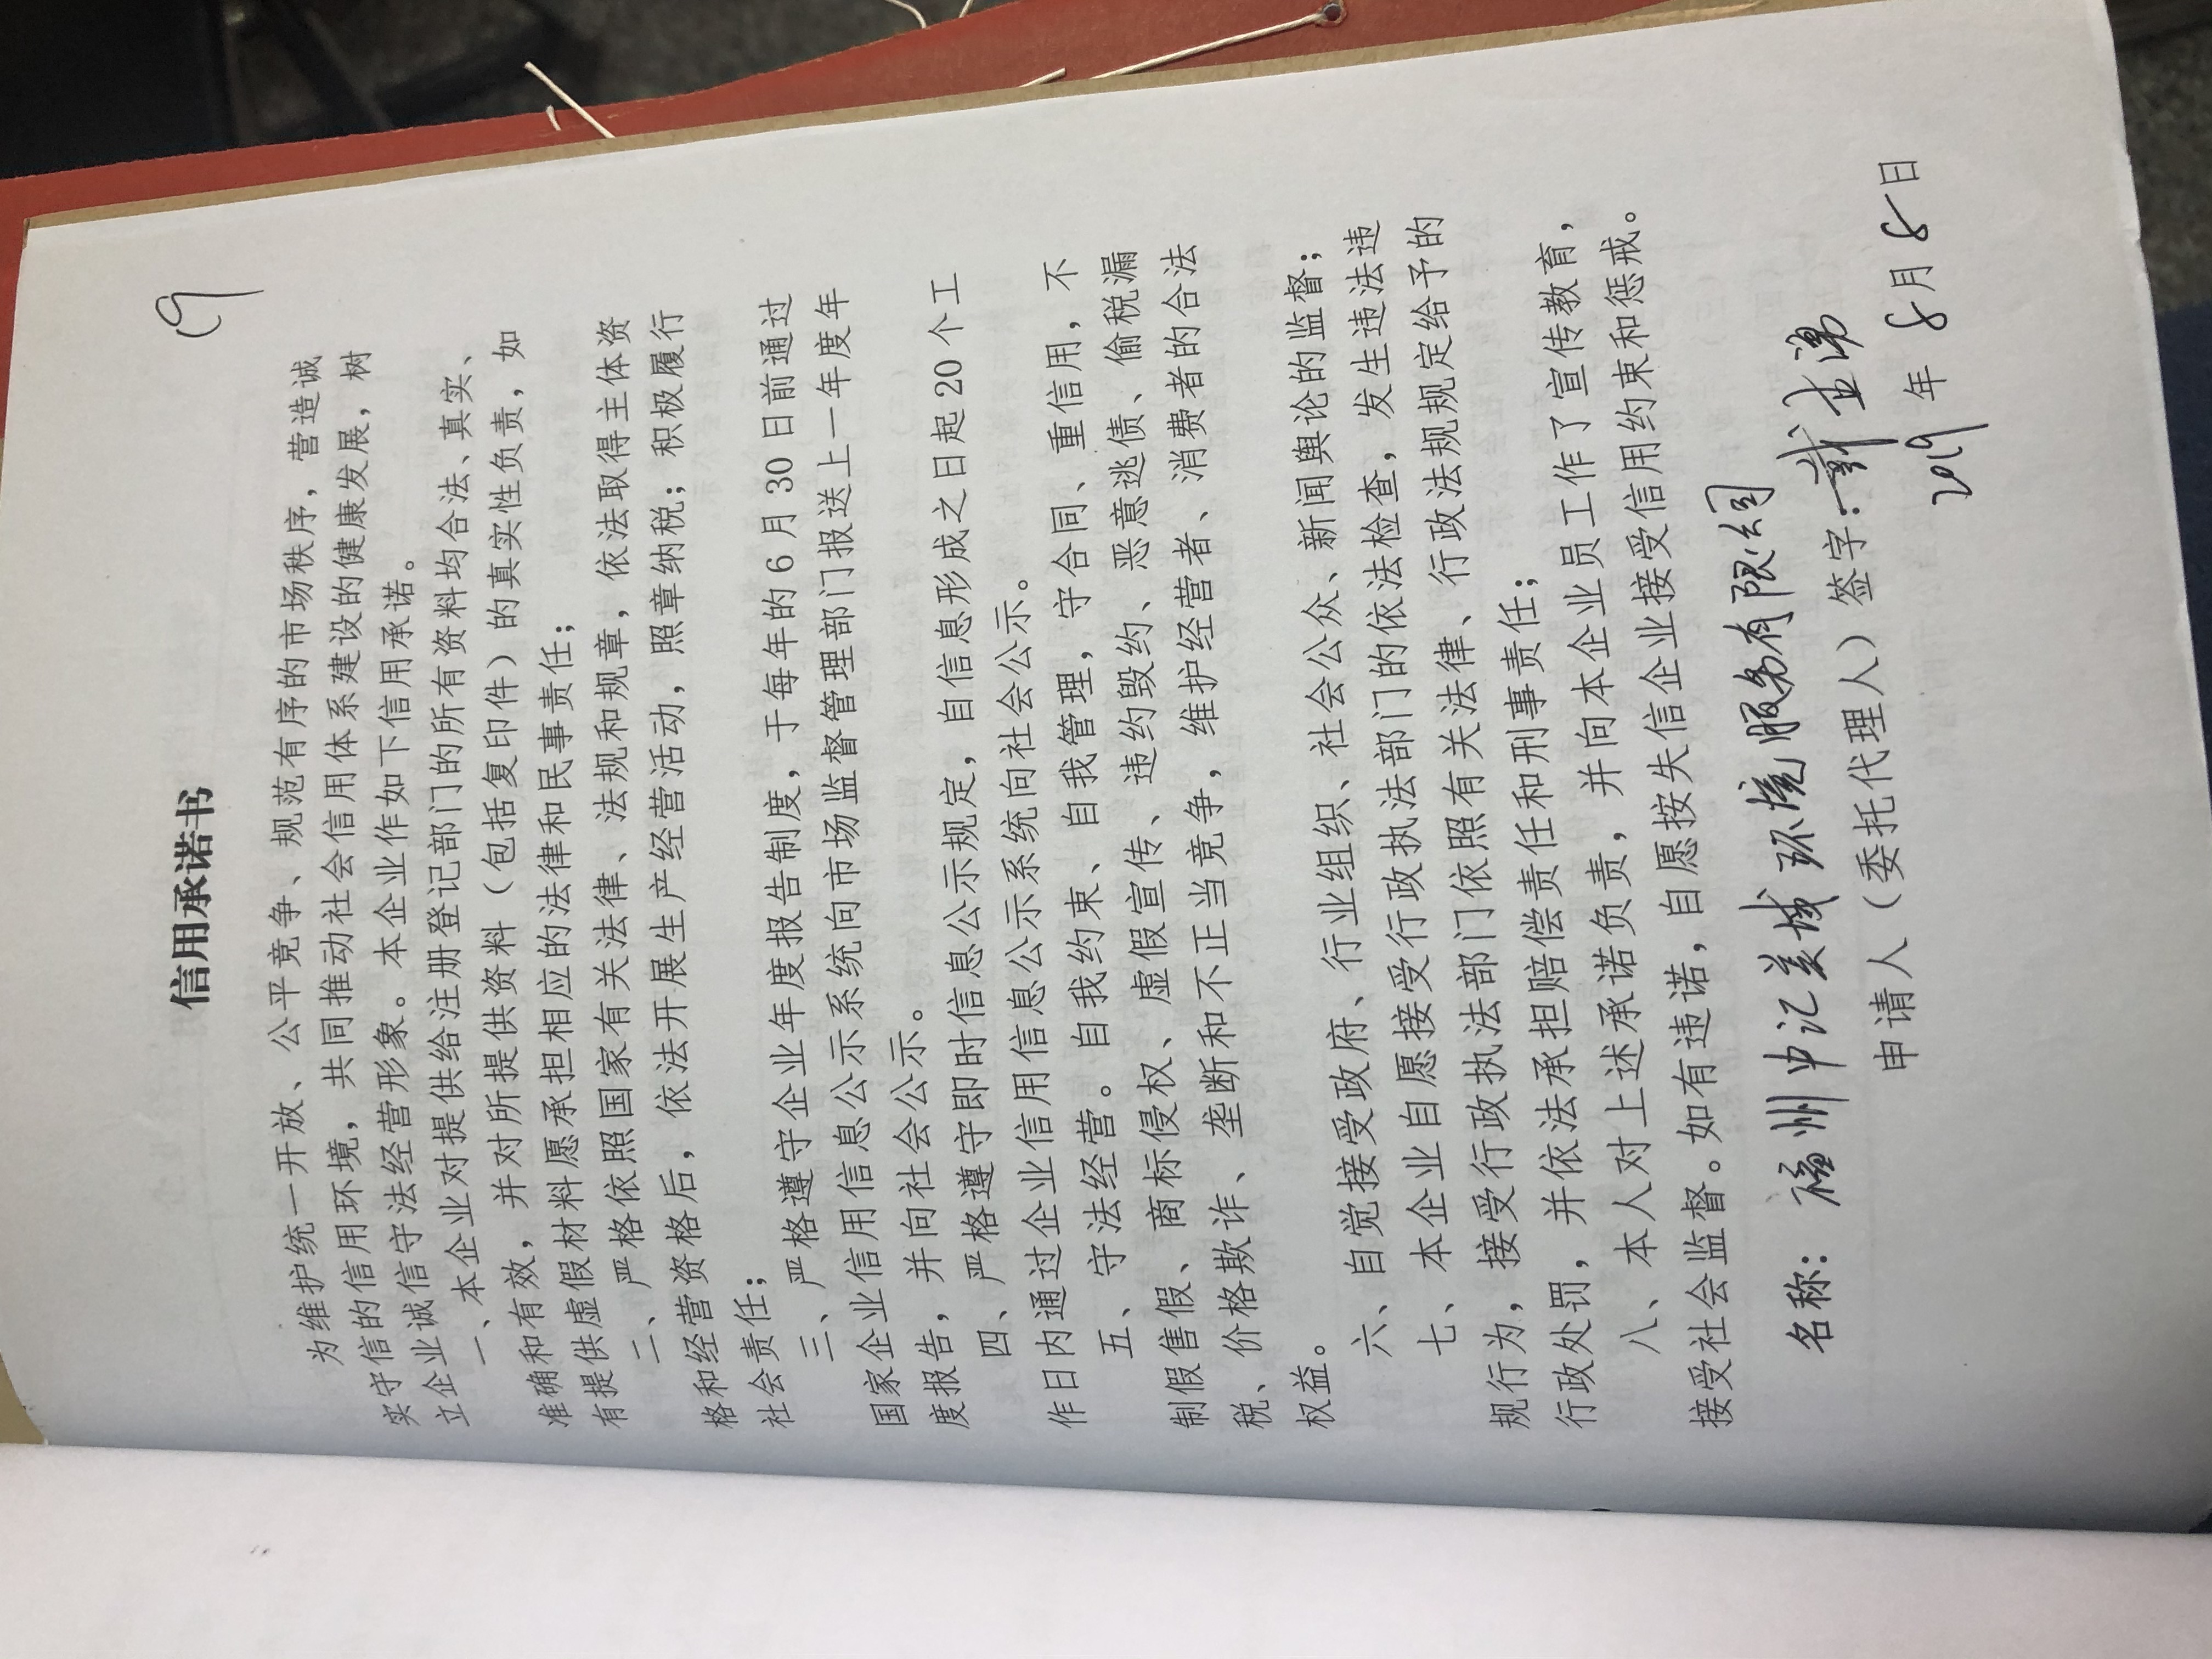 19
信用承诺书
为维护统一开放、公平竞争、规范有序的市场秩序，营造诚
实守信的信用环境，共同推动社会信用体系建设的健康发展，树
立企业诚信守法经营形象。本企业作如下信用承诺。
一、本企业对提供给注册登记部门的所有资料均合法、真实、
准确和有效，并对所提供资料（包括复印件）的真实性负责，如
有提供虚假材料愿承担相应的法律和民事责任；
二、严格依照国家有关法律、法规和规章，依法取得主体资
格和经营资格后，依法开展生产经营活动，照章纳税；积极履行
社会责任；
三、严格遵守企业年度报告制度，于每年的6月30日前通过
国家企业信用信息公示系统向市场监督管理部门报送上一年度年
度报告，并向社会公示。
四、严格遵守即时信息公示规定，自信息形成之日起20个工
作日内通过企业信用信息公示系统向社会公示。
五、守法经营。自我约束、自我管理，守合同、重信用，不
制假售假、商标侵权、虚假宣传、违约毁约、恶意逃债、偷税漏
税、价格欺诈、垄断和不正当竞争，维护经营者、消费者的合法
权益。
六、自觉接受政府、行业组织、社会公众、新闻舆论的监督；
七、本企业自愿接受行政执法部门的依法检查，发生违法违
规行为，接受行政执法部门依照有关法律、行政法规规定给予的
行政处罚，并依法承担赔偿责任和刑事责任；
八、本人对上述承诺负责，并向本企业员工作了宣传教育，
接受社会监督。如有违诺，自愿按失信企业接受信用约束和惩戒。
名称：福州中汇美城环境服务有限公司
申请人（委托代理人）签字：
2019年8月8日